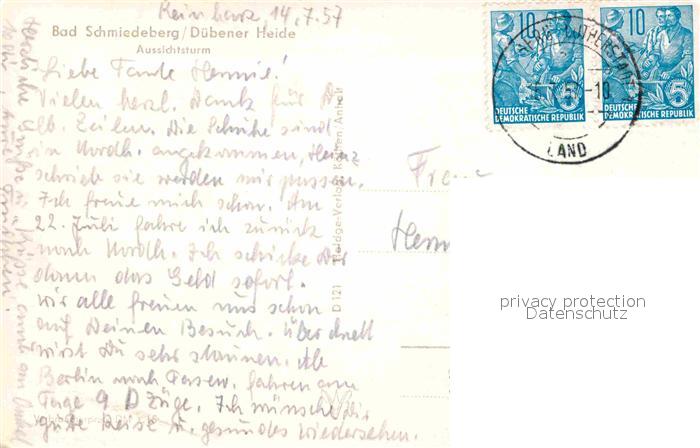 Reinharz, 14.7.57
Bad Schmiedeberg/Dübener Heide
Aussichtsturm
Liebe Tante Hennie!
Vielen herzl. Dank für D.
lb. Zeilen. Die Schuhe sind
in Nordh. angekommen, Heinz
schrieb sie werden mir passen.
Ich freue mich schon. Am
22. Juli fahre ich zurück
nach Nordh. Ich schicke Dir
dann das Geld sofort.
Wir alle freuen uns schon
auf Deinen Besuch. Überdnell
wirst Du sehr staunen. Ab
Berlin nach Pasew. fahren am
Tage 9 D Züge. Ich wünsche Dir
gute Reise u. gesundes Wiedersehen.
Herzliche Grüße u. Küsse auch an Onkel
D 121
Frau
10
DEUTSCHE
DEMOKRATISCHE REPUBLIK
5
10
DEUTSCHE
DEMOKRATISCHE REPUBLIK
5
-10
LAND
privacy protection
Datenschutz